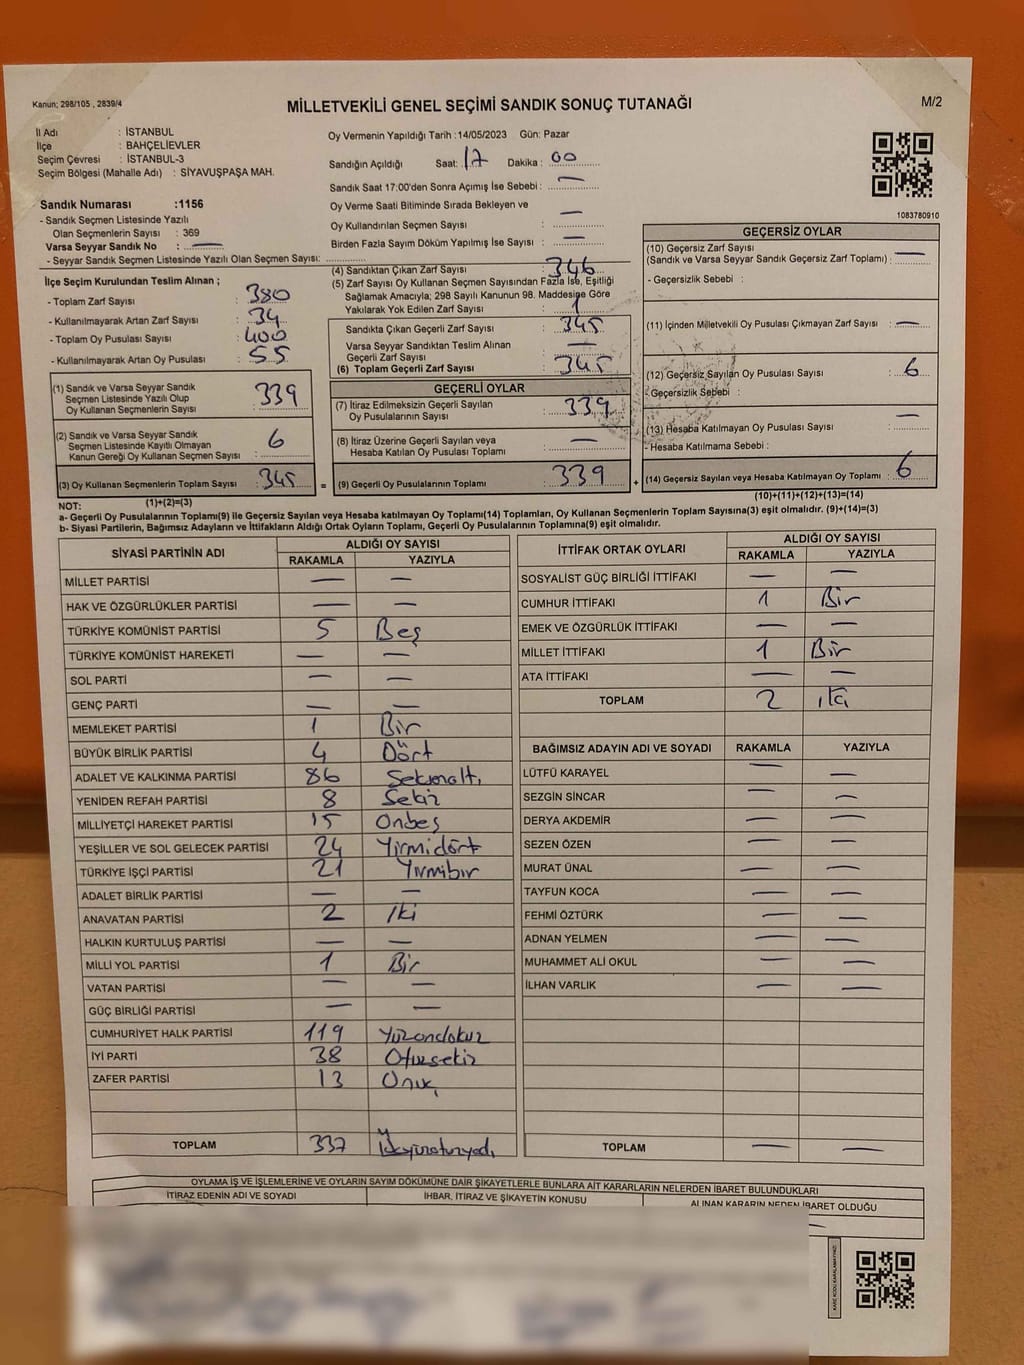 Kanun; 298/105 , 2839/4
MİLLETVEKİLİ GENEL SEÇİMİ SANDIK SONUÇ TUTANAĞI
M/2
İl Adı : İSTANBUL
İlçe : BAHÇELİEVLER
Seçim Çevresi : İSTANBUL-3
Seçim Bölgesi (Mahalle Adı) : SİYAVUŞPAŞA MAH.
Oy Vermenin Yapıldığı Tarih :14/05/2023 Gün: Pazar
Sandığın Açıldığı Saat: 17 Dakika : 00
Sandık Saat 17:00'den Sonra Açımış İse Sebebi : —
Oy Verme Saati Bitiminde Sırada Bekleyen ve
Oy Kullandırılan Seçmen Sayısı : —
Birden Fazla Sayım Döküm Yapılmış İse Sayısı : —
1083780910
Sandık Numarası :1156
- Sandık Seçmen Listesinde Yazılı
Olan Seçmenlerin Sayısı : 369
Varsa Seyyar Sandık No : —
- Seyyar Sandık Seçmen Listesinde Yazılı Olan Seçmen Sayısı:
İlçe Seçim Kurulundan Teslim Alınan ;
- Toplam Zarf Sayısı : 380
- Kullanılmayarak Artan Zarf Sayısı : 34
- Toplam Oy Pusulası Sayısı : 400
- Kullanılmayarak Artan Oy Pusulası : 55
(1) Sandık ve Varsa Seyyar Sandık
Seçmen Listesinde Yazılı Olup
Oy Kullanan Seçmenlerin Sayısı : 339
(2) Sandık ve Varsa Seyyar Sandık
Seçmen Listesinde Kayıtlı Olmayan
Kanun Gereği Oy Kullanan Seçmen Sayısı : 6
(3) Oy Kullanan Seçmenlerin Toplam Sayısı : 345 =
(1)+(2)=(3)
(4) Sandıktan Çıkan Zarf Sayısı : 346
(5) Zarf Sayısı Oy Kullanan Seçmen Sayısından Fazla İse, Eşitliği
Sağlamak Amacıyla; 298 Sayılı Kanunun 98. Maddesine Göre
Yakılarak Yok Edilen Zarf Sayısı : 1
Sandıkta Çıkan Geçerli Zarf Sayısı : 345
Varsa Seyyar Sandıktan Teslim Alınan
Geçerli Zarf Sayısı : —
(6) Toplam Geçerli Zarf Sayısı : 345
GEÇERLİ OYLAR
(7) İtiraz Edilmeksizin Geçerli Sayılan
Oy Pusulalarının Sayısı : 339
(8) İtiraz Üzerine Geçerli Sayılan veya
Hesaba Katılan Oy Pusulası Toplamı : —
(9) Geçerli Oy Pusulalarının Toplamı : 339 +
GEÇERSİZ OYLAR
(10) Geçersiz Zarf Sayısı
(Sandık ve Varsa Seyyar Sandık Geçersiz Zarf Toplamı) : —
- Geçersizlik Sebebi :
(11) İçinden Milletvekili Oy Pusulası Çıkmayan Zarf Sayısı : —
(12) Geçersiz Sayılan Oy Pusulası Sayısı : 6
- Geçersizlik Sebebi :
(13) Hesaba Katılmayan Oy Pusulası Sayısı : —
- Hesaba Katılmama Sebebi :
(14) Geçersiz Sayılan veya Hesaba Katılmayan Oy Toplamı : 6
(10)+(11)+(12)+(13)=(14)
NOT:
a- Geçerli Oy Pusulalarının Toplamı(9) ile Geçersiz Sayılan veya Hesaba Katılmayan Oy Toplamı(14) Toplamları, Oy Kullanan Seçmenlerin Toplam Sayısına(3) eşit olmalıdır. (9)+(14)=(3)
b- Siyasi Partilerin, Bağımsız Adayların ve İttifakların Aldığı Ortak Oyların Toplamı, Geçerli Oy Pusulalarının Toplamına(9) eşit olmalıdır.
SİYASİ PARTİNİN ADI ALDIĞI OY SAYISI
RAKAMLA YAZIYLA
MİLLET PARTİSİ — —
HAK VE ÖZGÜRLÜKLER PARTİSİ — —
TÜRKİYE KOMÜNİST PARTİSİ 5 Beş
TÜRKİYE KOMÜNİST HAREKETİ — —
SOL PARTİ — —
GENÇ PARTİ — —
MEMLEKET PARTİSİ 1 Bir
BÜYÜK BİRLİK PARTİSİ 4 Dört
ADALET VE KALKINMA PARTİSİ 86 Seksenaltı
YENİDEN REFAH PARTİSİ 8 Sekiz
MİLLİYETÇİ HAREKET PARTİSİ 15 Onbeş
YEŞİLLER VE SOL GELECEK PARTİSİ 24 Yirmidört
TÜRKİYE İŞÇİ PARTİSİ 21 Yirmibir
ADALET BİRLİK PARTİSİ — —
ANAVATAN PARTİSİ 2 İki
HALKIN KURTULUŞ PARTİSİ — —
MİLLİ YOL PARTİSİ 1 Bir
VATAN PARTİSİ — —
GÜÇ BİRLİĞİ PARTİSİ — —
CUMHURİYET HALK PARTİSİ 119 Yüzondokuz
İYİ PARTİ 38 Otuzsekiz
ZAFER PARTİSİ 13 Onüç
TOPLAM 337
İTTİFAK ORTAK OYLARI ALDIĞI OY SAYISI
RAKAMLA YAZIYLA
SOSYALİST GÜÇ BİRLİĞİ İTTİFAKI — —
CUMHUR İTTİFAKI 1 Bir
EMEK VE ÖZGÜRLÜK İTTİFAKI — —
MİLLET İTTİFAKI 1 Bir
ATA İTTİFAKI — —
TOPLAM 2 iki
BAĞIMSIZ ADAYIN ADI VE SOYADI RAKAMLA YAZIYLA
LÜTFÜ KARAYEL — —
SEZGİN SİNCAR — —
DERYA AKDEMİR — —
SEZEN ÖZEN — —
MURAT ÜNAL — —
TAYFUN KOCA — —
FEHMİ ÖZTÜRK — —
ADNAN YELMEN — —
MUHAMMET ALİ OKUL — —
İLHAN VARLIK — —
TOPLAM — —
OYLAMA İŞ VE İŞLEMLERİNE VE OYLARIN SAYIM DÖKÜMÜNE DAİR ŞİKAYETLERLE BUNLARA AİT KARARLARIN NELERDEN İBARET BULUNDUKLARI
İTİRAZ EDENİN ADI VE SOYADI İHBAR, İTİRAZ VE ŞİKAYETİN KONUSU ALINAN KARARIN NEDEN İBARET OLDUĞU
—
KARE KODU KARALAMAYINIZ!